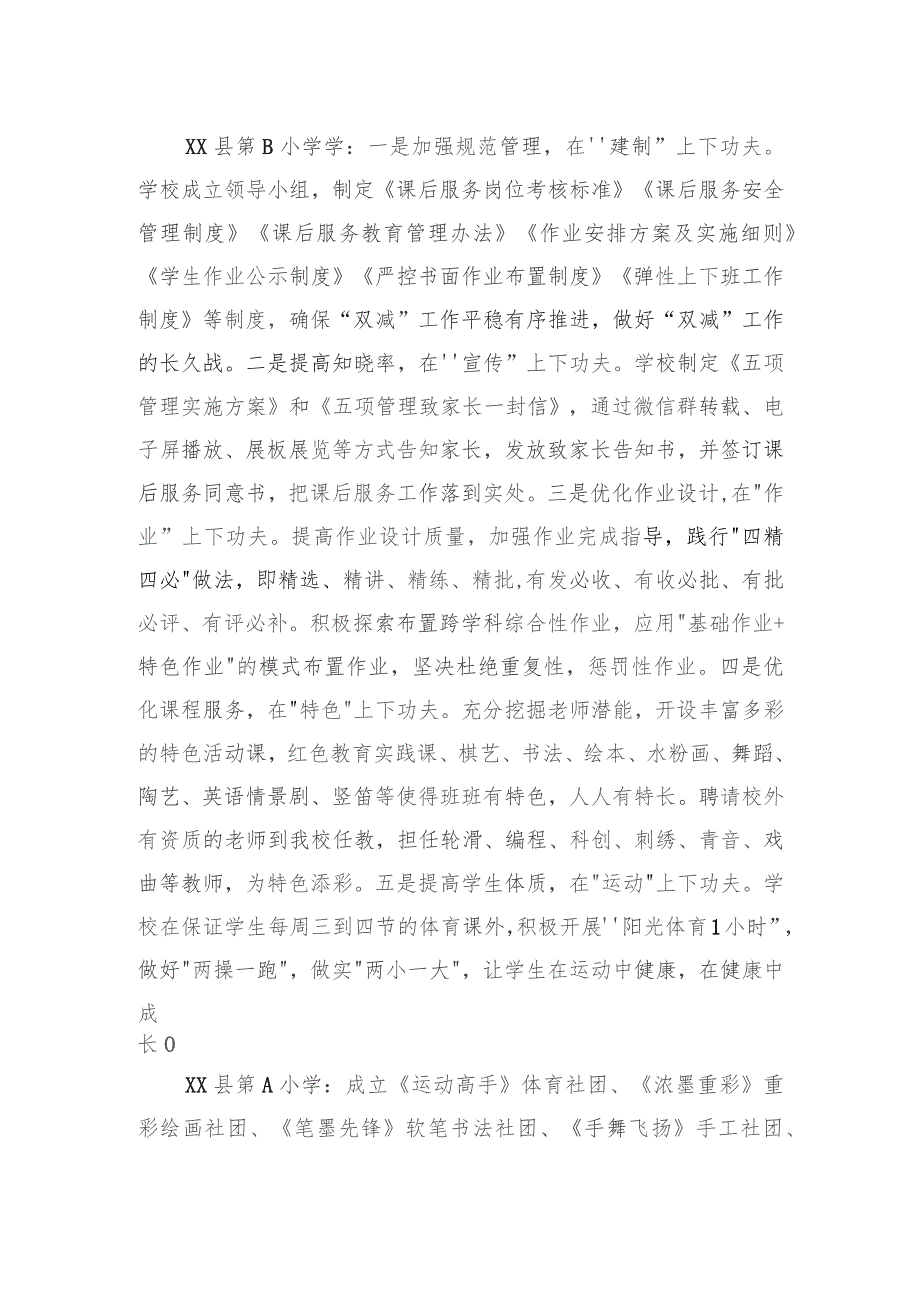 XX 县第 B 小学学：一是加强规范管理，在''建制”上下功夫。
学校成立领导小组，制定《课后服务岗位考核标准》《课后服务安全
管理制度》《课后服务教育管理办法》《作业安排方案及实施细则》
《学生作业公示制度》《严控书面作业布置制度》《弹性上下班工作
制度》等制度，确保“双减”工作平稳有序推进，做好“双减”工作
的长久战。二是提高知晓率，在''宣传”上下功夫。学校制定《五项
管理实施方案》和《五项管理致家长一封信》，通过微信群转载、电
子屏播放、展板展览等方式告知家长，发放致家长告知书，并签订课
后服务同意书，把课后服务工作落到实处。三是优化作业设计,在"作
业”上下功夫。提高作业设计质量，加强作业完成指导，践行"四精
四必"做法，即精选、精讲、精练、精批,有发必收、有收必批、有批
必评、有评必补。积极探索布置跨学科综合性作业，应用"基础作业+
特色作业"的模式布置作业，坚决杜绝重复性，惩罚性作业。四是优
化课程服务，在"特色"上下功夫。充分挖掘老师潜能，开设丰富多彩
的特色活动课，红色教育实践课、棋艺、书法、绘本、水粉画、舞蹈、
陶艺、英语情景剧、竖笛等使得班班有特色，人人有特长。聘请校外
有资质的老师到我校任教，担任轮滑、编程、科创、刺绣、青音、戏
曲等教师，为特色添彩。五是提高学生体质，在"运动"上下功夫。学
校在保证学生每周三到四节的体育课外,积极开展''阳光体育1小时”，
做好"两操一跑"，做实"两小一大"，让学生在运动中健康，在健康中
成
长0
XX 县第 A 小学：成立《运动高手》体育社团、《浓墨重彩》重
彩绘画社团、《笔墨先锋》软笔书法社团、《手舞飞扬》手工社团、